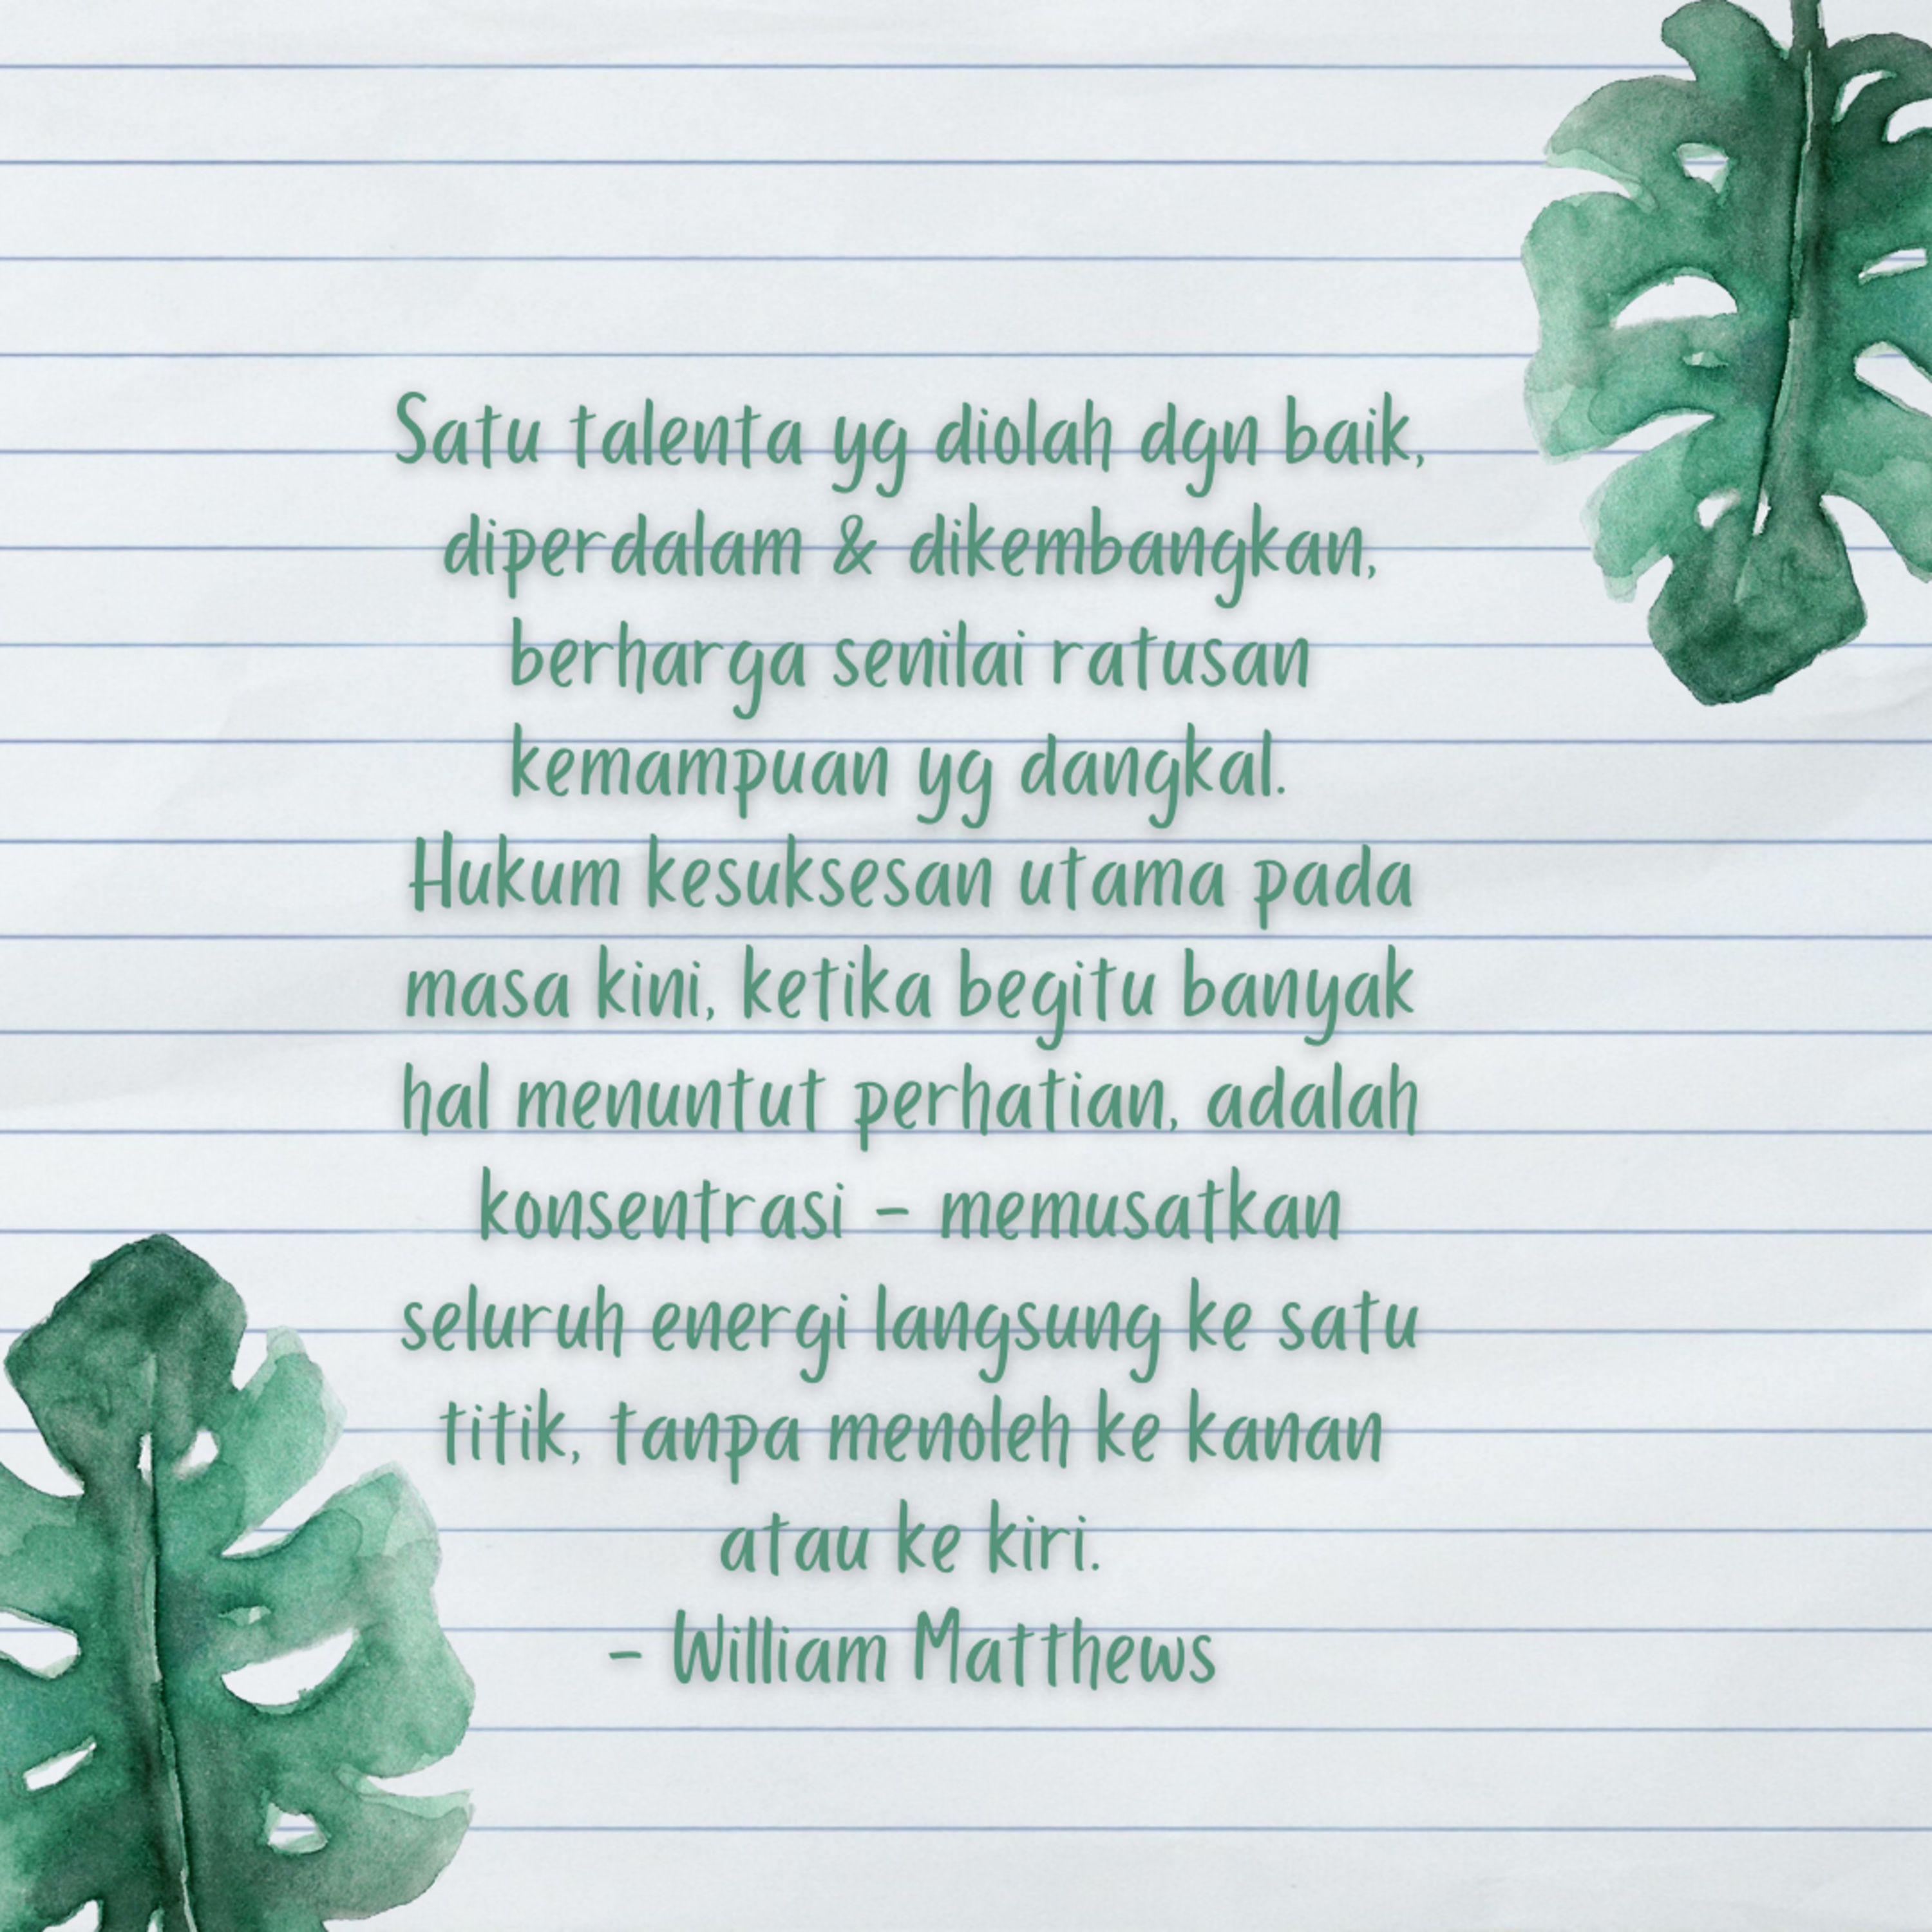 Satu talenta yg diolah dgn baik,
diperdalam & dikembangkan,
berharga senilai ratusan
kemampuan yg dangkal.
Hukum kesuksesan utama pada
masa kini, ketika begitu banyak
hal menuntut perhatian, adalah
konsentrasi - memusatkan
seluruh energi langsung ke satu
titik, tanpa menoleh ke kanan
atau ke kiri.
- William Matthews